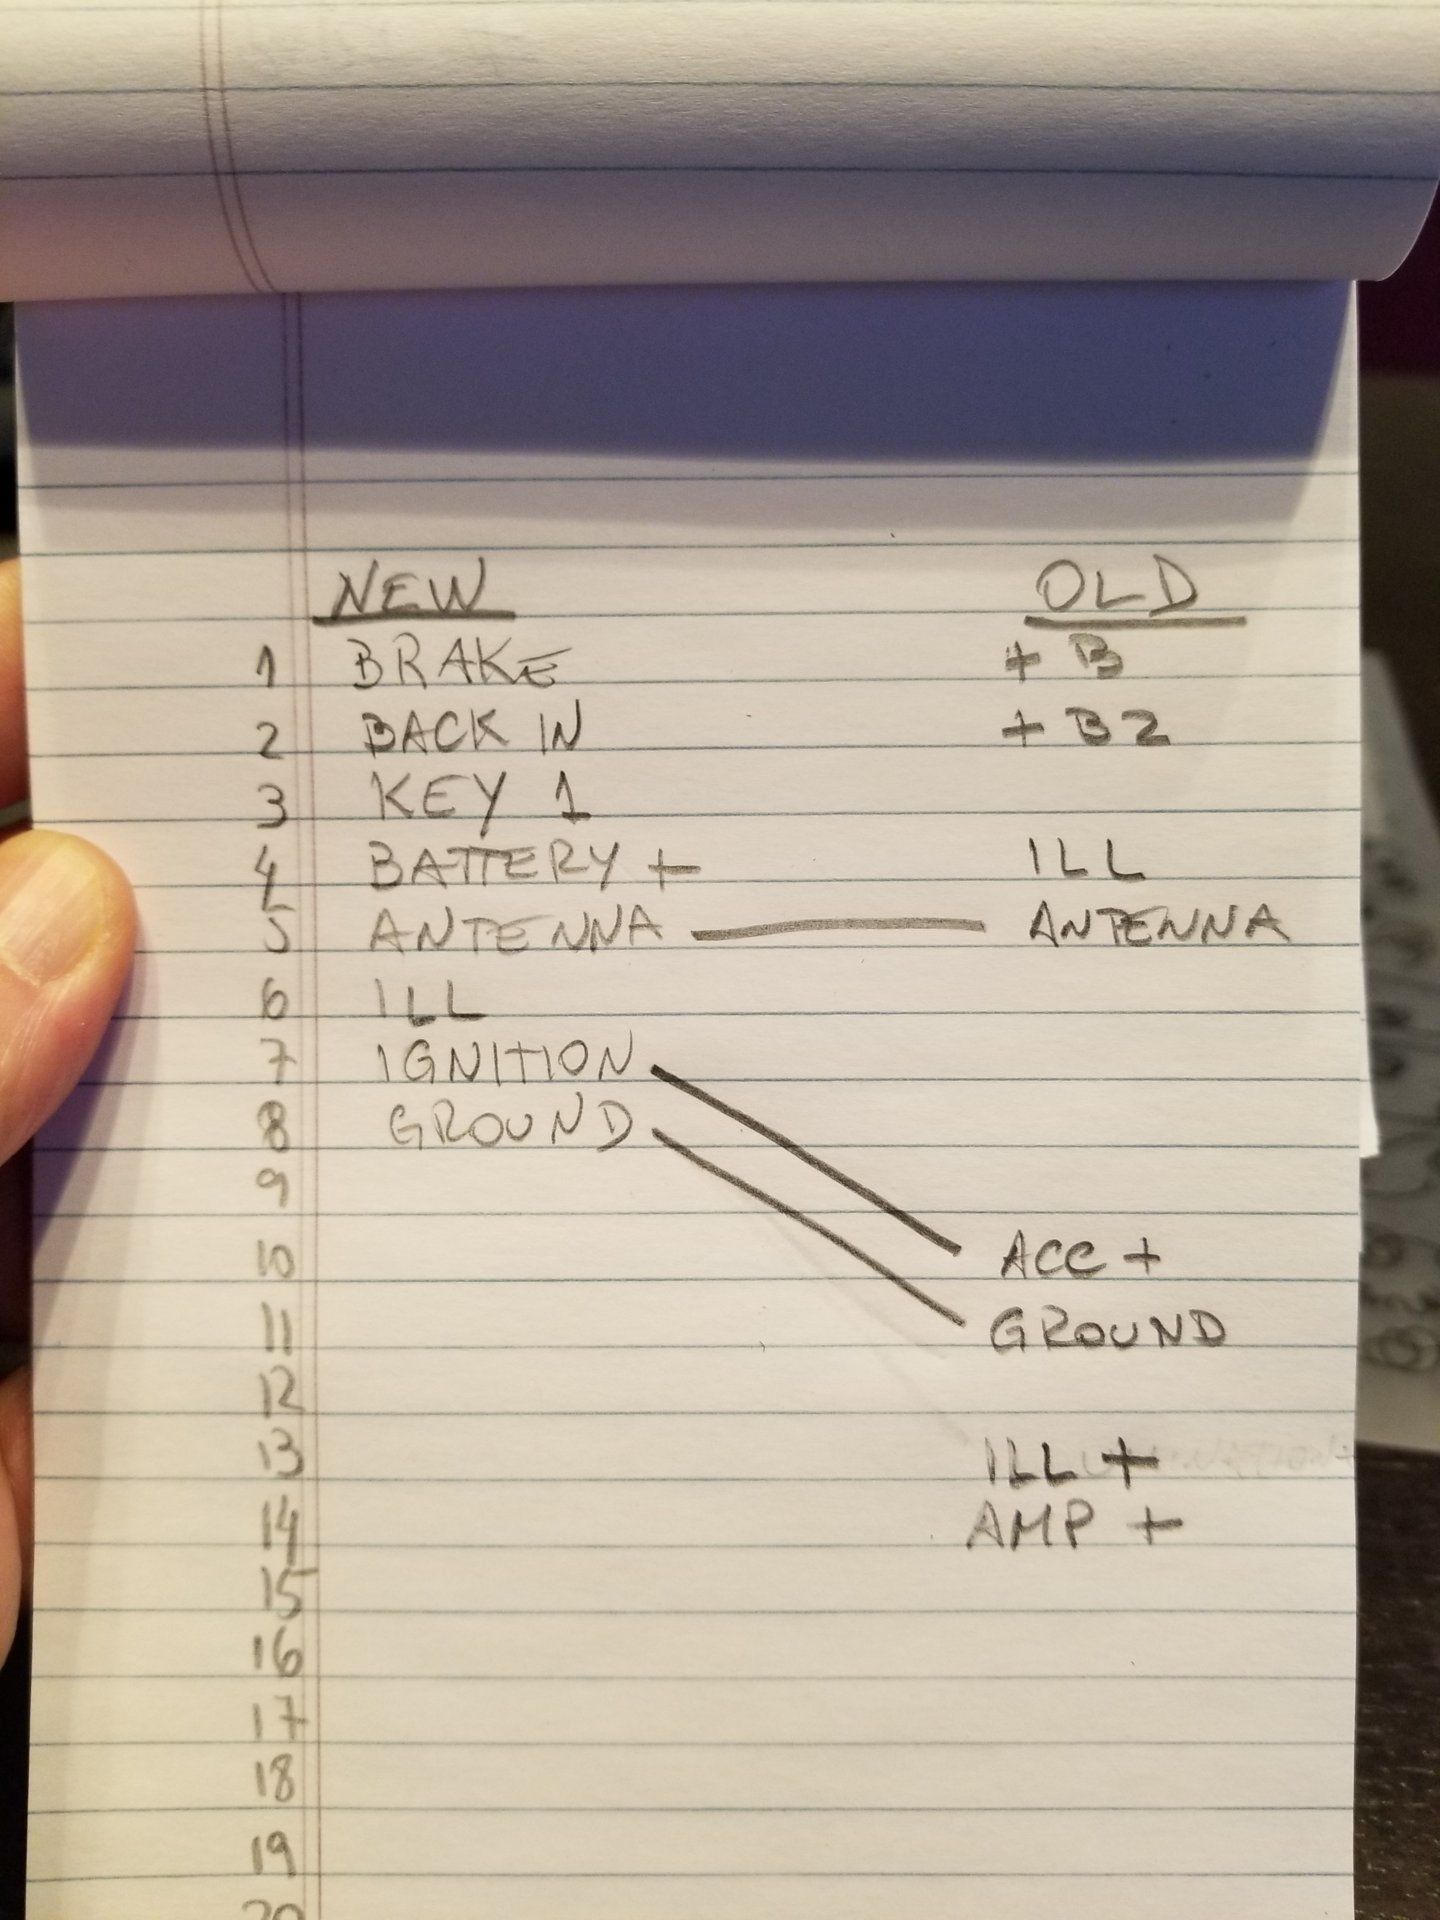 NEW OLD
1 BRAKE + B
2 BACK IN + B2
3 KEY 1
4 BATTERY + ILL
5 ANTENNA ANTENNA
6 ILL
7 IGNITION
8 GROUND
9
10 ACC +
11 GROUND
12
13 ILL +
14 AMP +
15
16
17
18
19
20